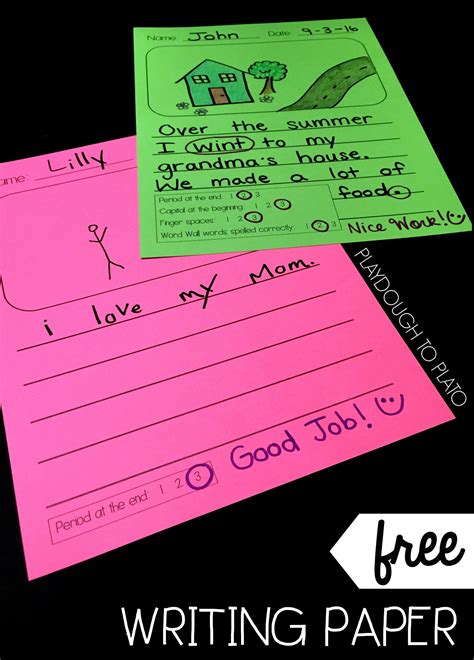 Name: John Date: 9-3-16
Over the summer
I wint to my
grandma's house.
We made a lot of
food.
Period at the end: 1 2 3
Capital at the beginning: 1 2 3
Finger spaces: 1 2 3
Word Wall words spelled correctly: 1 2 3
Nice Work!
ame: Lilly
i love my Mom.
Period at the end: 1 2 3
Good Job!
PLAYDOUGH TO PLATO
free
WRITING PAPER